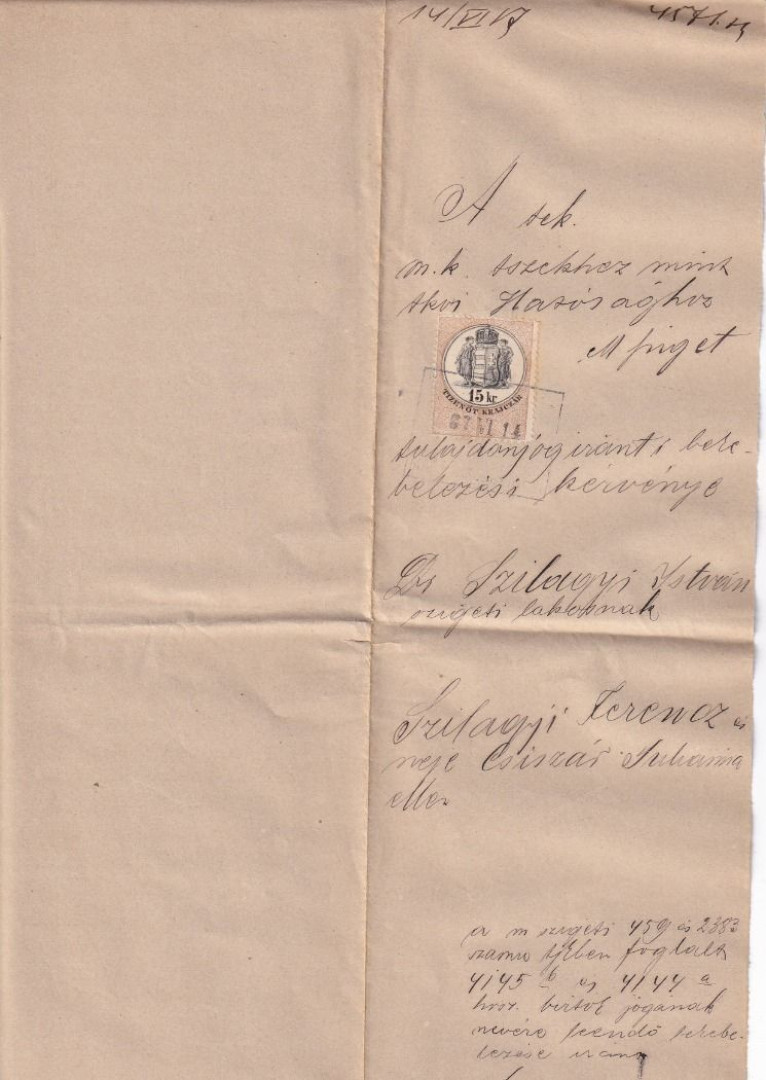 14/VI 87
A tek.
m. k. tszékhez mint
tkvi Hatósághoz
M sziget
15 kr
TIZENÖT KRAJCZÁR
87 VI 14
tulajdonjog iránti beke-
belezési kérvénye
Dr Szilagyi István
szigeti lakosnak
Szilagyi Ferencz és
neje Csiszár Juliánna
ellen
a m szigeti 459 és
számu tjkben foglalt
4145 b és 4144 a
hrsz. birtok jogának
nevére leendő bekebe-
lezése iránt